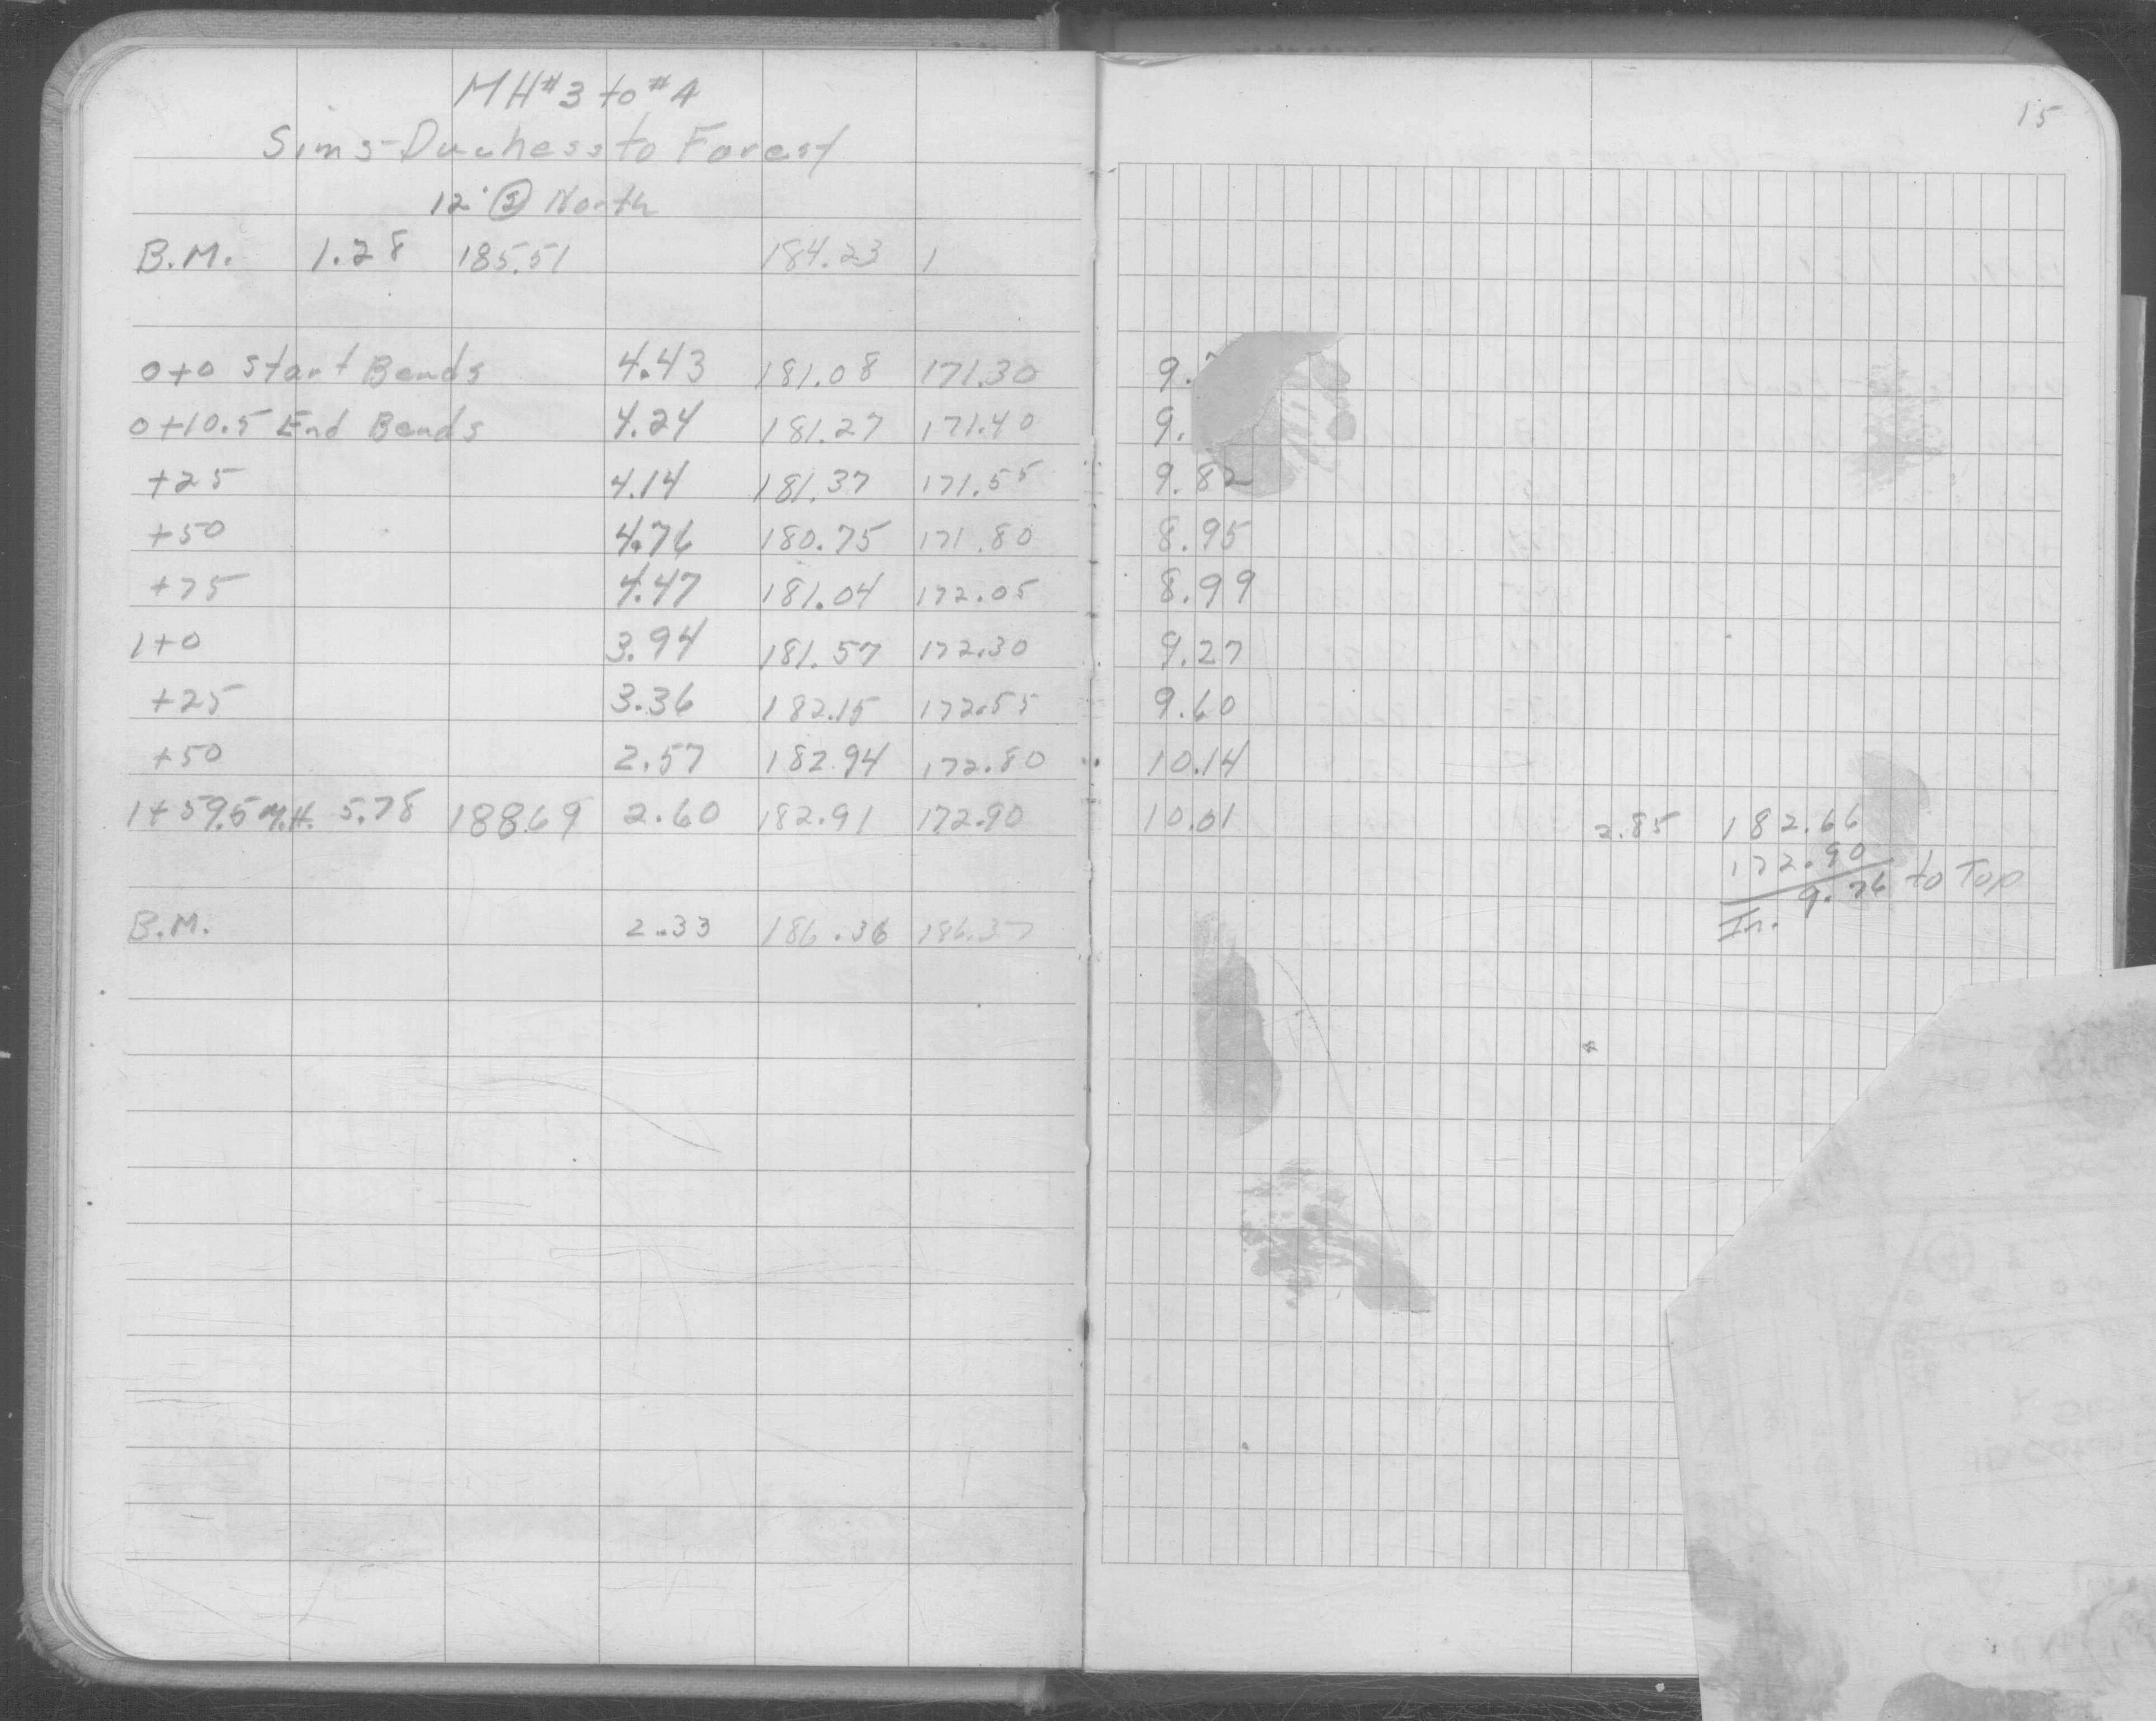 15
MH #3 to #4
Sims-Duchess to Forest
12" Ⓢ North
B.M. 1.28 185.51 184.23
0+0 Start Bends 4.43 181.08 171.30 9.
0+10.5 End Bends 4.24 181.27 171.40 9.
+25 4.14 181.37 171.55 9.82
+50 4.76 180.75 171.80 8.95
+75 4.47 181.04 172.05 8.99
1+0 3.94 181.57 172.30 9.27
+25 3.36 182.15 172.55 9.60
+50 2.57 182.94 172.80 10.14
1+59.5 M.H. 5.78 188.69 2.60 182.91 172.90 10.01 2.85 182.66
172.90
In. 9.76 to Top
B.M. 2.33 186.36 186.37